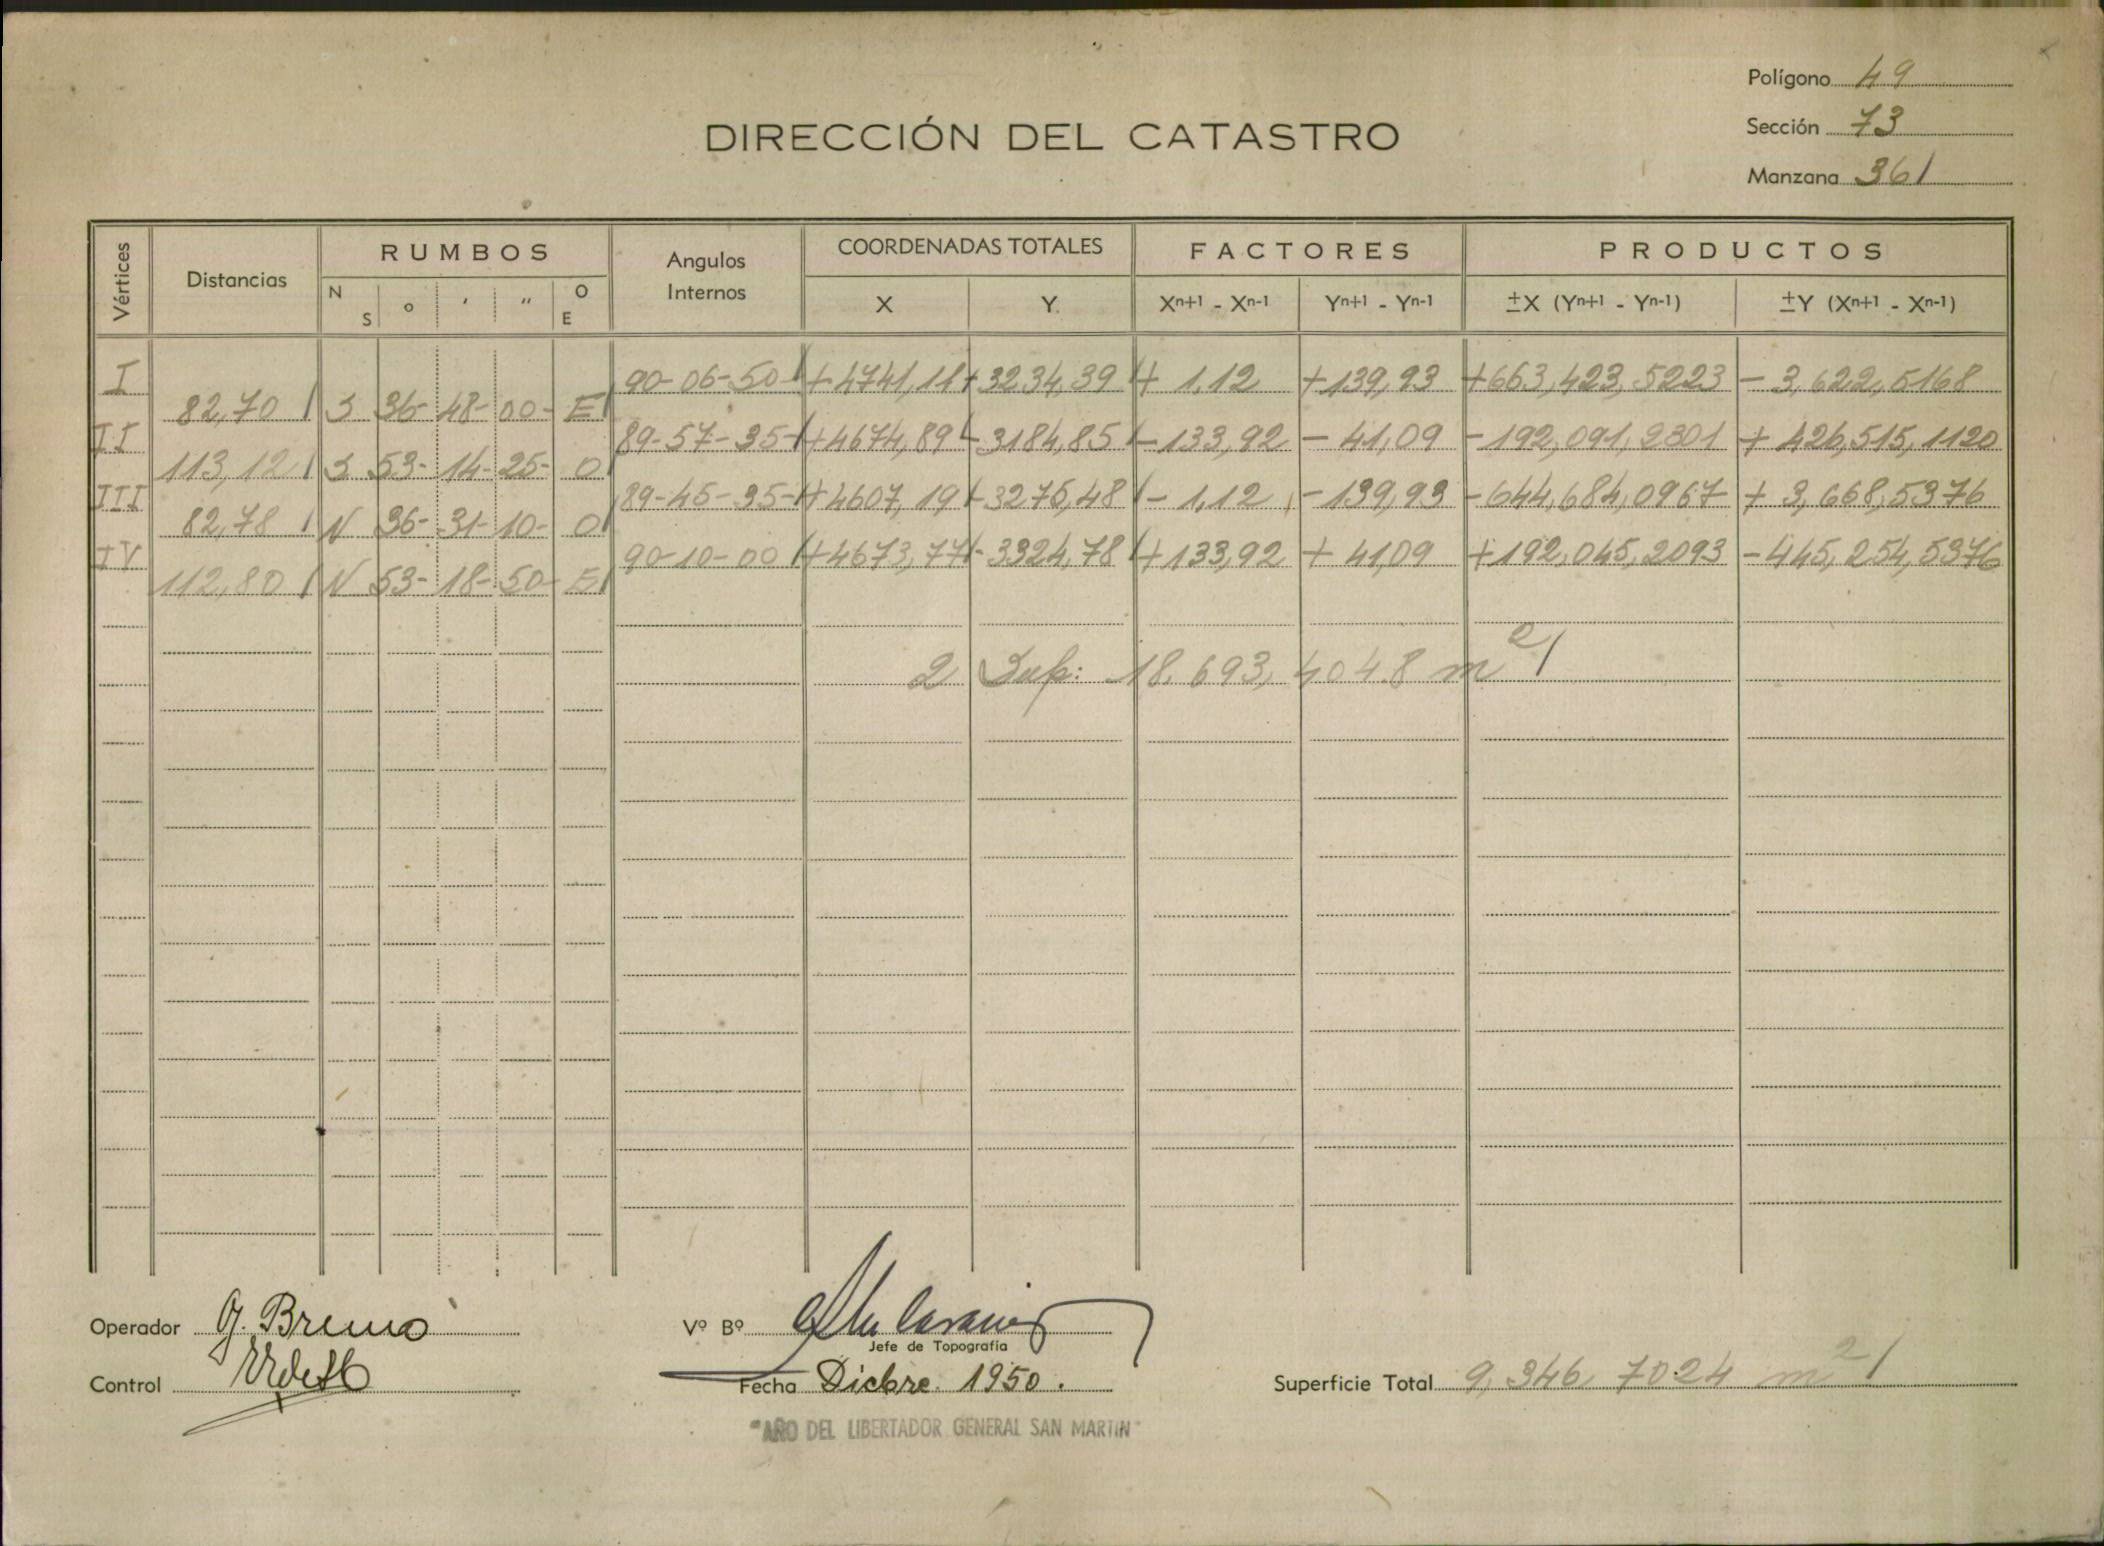 Polígono 49
DIRECCIÓN DEL CATASTRO
Sección 73
Manzana 361
Vértices Distancias RUMBOS Angulos Internos COORDENADAS TOTALES FACTORES PRODUCTOS
N S o ' " O E X Y Xn+1 - Xn-1 Yn+1 - Yn-1 ±X (Yn+1 - Yn-1) ±Y (Xn+1 - Xn-1)
I 90-06-50 +4741,11 -3234,39 + 1,12 +139,93 +663,423,5223 - 3,622,5168
82,70 S 36- 48- 00- E
II 89-57-35- +4674,89 -3184,85 -133,92 - 41,09 -192,091,2301 + 426,515,1120
113,12 S 53- 14- 25- O
III 89-45-35- +4607,19 -3275,48 - 1,12 -139,93 -644,684,0967 + 3,668,5376
82,78 N 36- 31- 10- O
IV 90-10-00 +4673,77 -3324,78 +133,92 + 41,09 +192,045,2093 -445,254,5376
112,80 N 53- 18- 50- E
2 Sup: 18,693,4048 m2
Operador G. Bruno
Vº Bº
Jefe de Topografía
Control
Fecha Dicbre. 1950.
Superficie Total 9,346,7024 m2
"AÑO DEL LIBERTADOR GENERAL SAN MARTIN"